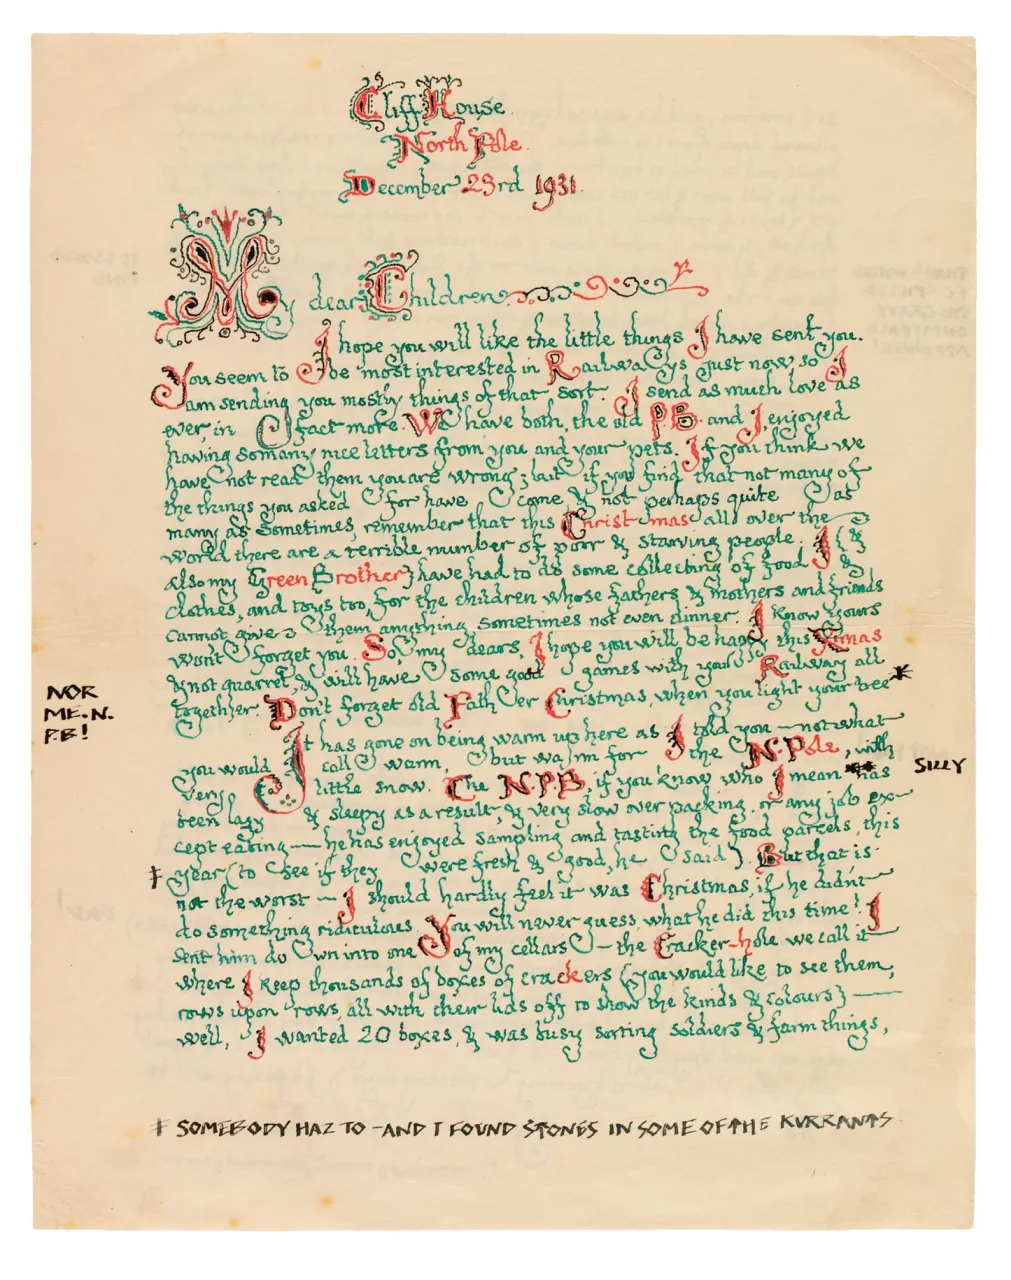 Cliff House
North Pole
December 23rd 1931.
My dear Children
I hope you will like the little things I have sent you.
You seem to be most interested in Railways just now, so I
am sending you mostly things of that sort. I send as much love as
ever, in fact more. We have both, the old P.B. and I, enjoyed
having so many nice letters from you and your pets. If you think we
have not read them you are wrong; but if you find that not many of
the things you asked for have come, & not perhaps quite as
many as sometimes, remember that this Christmas all over the
world there are a terrible number of poor & starving people. I (&
also my Green Brother) have had to do some collecting of food &
clothes, and toys too, for the children whose fathers & mothers and friends
cannot give them anything, sometimes not even dinner. I know yours
won't forget you. So, my dears, I hope you will be happy this Xmas
& not quarrel, & will have some good games with your Railway all
together. Don't forget old Father Christmas, when you light your tree *
NOR
ME. N.
P.B!
It has gone on being warm up here as I told you — not what
you would call warm, but warm for the N. Pole, with
very little snow. The N.P.B, if you know who I mean ** has
SILLY
been lazy & sleepy as a result, & very slow over packing, or any job ex-
cept eating — he has enjoyed sampling and tasting the food parcels, this
ǂ year (to see if they were fresh & good, he said). But that is
not the worst — I should hardly feel it was Christmas, if he didn't
do something ridiculous. You will never guess what he did this time! I
sent him down into one of my cellars — the Cracker-hole we call it —
where I keep thousands of boxes of crackers (you would like to see them,
rows upon rows, all with their lids off to show the kinds & colours) —
well, I wanted 20 boxes, & was busy sorting soldiers & farm things,
ǂ SOMEBODY HAZ TO - AND I FOUND STONES IN SOME OF THE KURRANTS